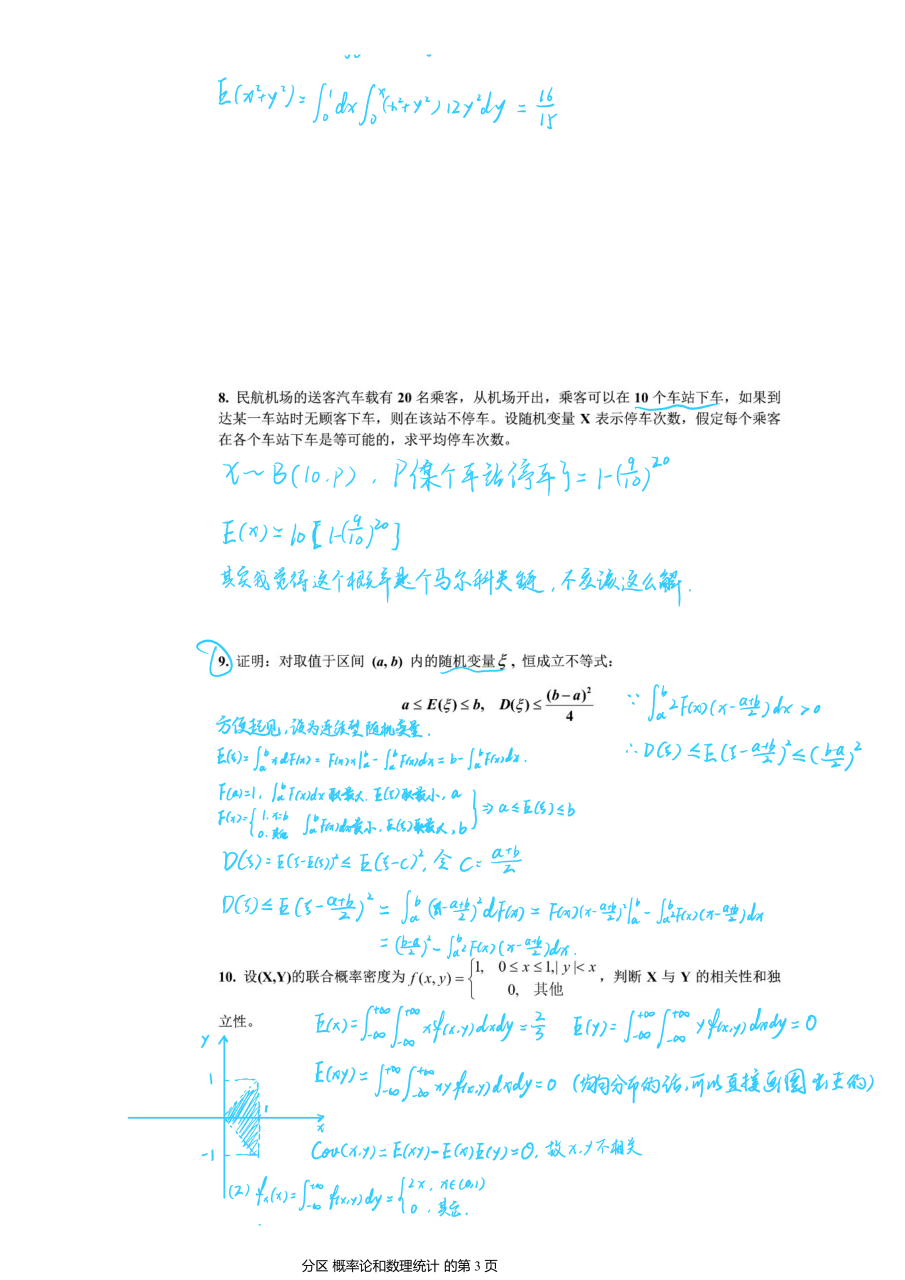 E(x²+y²)=∫₀¹dx∫₀ˣ(x²+y²)12y²dy = 16/15
8. 民航机场的送客汽车载有 20 名乘客，从机场开出，乘客可以在 10 个车站下车，如果到
达某一车站时无顾客下车，则在该站不停车。设随机变量 X 表示停车次数，假定每个乘客
在各个车站下车是等可能的，求平均停车次数。
X~B(10.P) , P{某个车站停车}=1-(9/10)²⁰
E(x)=10[1-(9/10)²⁰]
其实我觉得这个概率是个马尔科夫链，不应该这么解.
9. 证明：对取值于区间 (a, b) 内的随机变量 ξ , 恒成立不等式：
a ≤ E(ξ) ≤ b, D(ξ) ≤ (b−a)²/4
∵ ∫ₐᵇ2F(x)(x-(a+b)/2)dx>0
方便起见，设为连续型随机变量.
∴ D(ξ)≤E(ξ-(a+b)/2)²≤((b-a)/2)²
E(ξ)=∫ₐᵇxdF(x)=F(x)x|ₐᵇ-∫ₐᵇF(x)dx=b-∫ₐᵇF(x)dx.
F(a)=1, ∫ₐᵇF(x)dx取最大. E(ξ)取最小, a
F(x)={1. x=b 0. 其他 ∫ₐᵇF(x)dx最小. E(ξ)取最大, b} ⇒ a≤E(ξ)≤b
D(ξ)=E(ξ-E(ξ))²≤E(ξ-C)², 令 C=(a+b)/2
D(ξ)≤E(ξ-(a+b)/2)²=∫ₐᵇ(x-(a+b)/2)²dF(x)=F(x)(x-(a+b)/2)²|ₐᵇ-∫ₐᵇ2F(x)(x-(a+b)/2)dx
=((b-a)/2)²-∫ₐᵇ2F(x)(x-(a+b)/2)dx.
10. 设(X,Y)的联合概率密度为 f(x,y)={1, 0≤x≤1,|y|<x 0, 其他 ，判断 X 与 Y 的相关性和独
立性。
E(x)=∫₋∞⁺∞∫₋∞⁺∞xf(x,y)dxdy=2/3 E(y)=∫₋∞⁺∞∫₋∞⁺∞yf(x,y)dxdy=0
E(xy)=∫₋∞⁺∞∫₋∞⁺∞xyf(x,y)dxdy=0 (均匀分布的话,可以直接画图出来的)
y
1
1
x
-1
Cov(x,y)=E(xy)-E(x)E(y)=0. 故x.y不相关
(2) fₓ(x)=∫₋∞⁺∞f(x,y)dy={2x, x∈(0,1) 0 , 其它.
分区 概率论和数理统计 的第 3 页